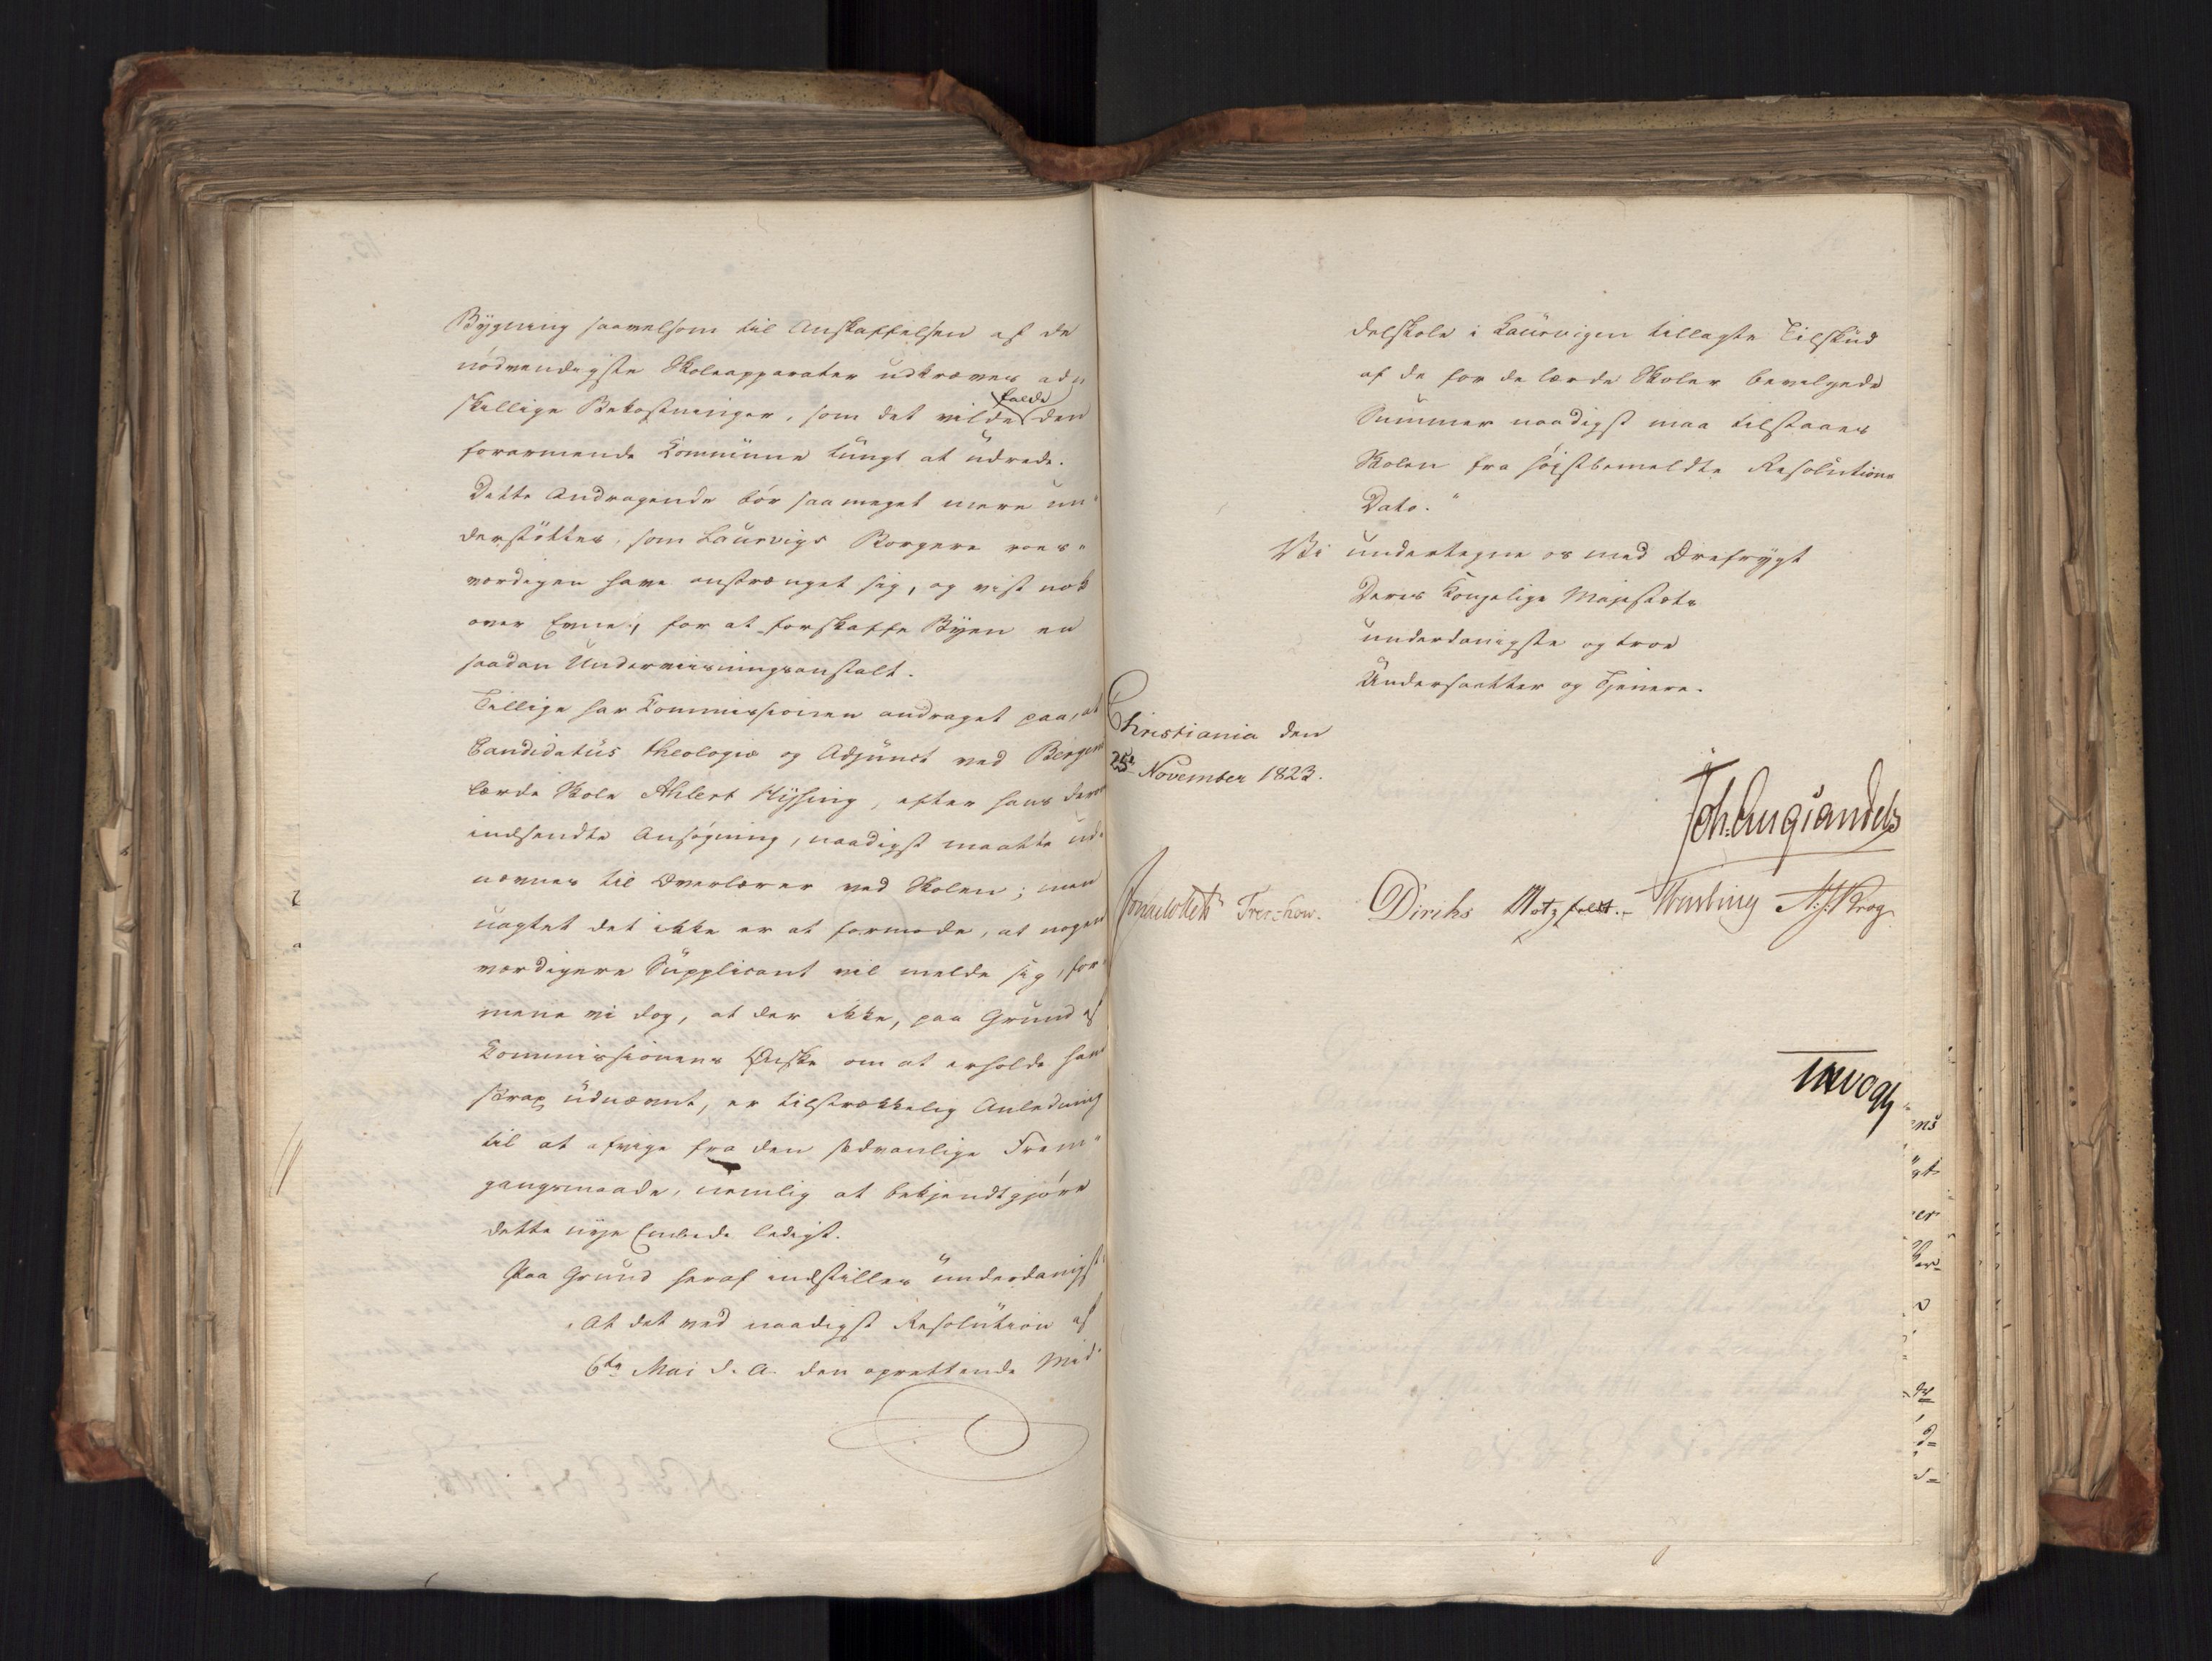 Bÿgning saavelsom til Anskaffelsen af de
nödvendigste Skoleapparater udkræves ad„
skillige Bekostninger, som det vilde falde den
forarmende Commüne tüngt at üdrede.
Dette Andragende bör saa meget mere ün„
derstöttes, som Laurvigs Borgere roes„
værdigen have anstrænget sig, og vist nok
over Evne, for at forskaffe Bÿen en
saadan Underviisningsanstalt.
Tillige har Commissionen andraget paa, at
Candidatüs theologiæ og Adjünct ved Bergens
lærde Skole Ahlert Hÿsing, efter hans derom
indsendte Ansøgning, naadigst maatte ud„
nævnes til Overlærer ved Skolen; men
uagtet det ikke er at formode, at nogen
værdigere Süpplicant vil melde sig, for„
mene vi dog, at der ikke, paa Grund af
Commissionens Ønske om at erholde ham
strax üdnævnt, er tilstrækkelig Anledning
til at afvige fra den sædvanlige Frem„
gangsmaade, nemlig at bekjendtgjöre
dette nÿe Embede ledigt.
Paa Grund heraf indstilles ünderdanigst:
„At det ved naadigst Resolütion af
6te Mai d. A. den oprettende Mid„
delskole i Laürvigen tillagte Tilskud
af de for de lærde Skoler bevilgede
Summer naadigst maa tilstaaes
Skolen fra høistbemeldte Resolütions
Dato.“
Vi undertegne os med Ærefrÿgt
Deres Kongelige Majestæts
underdanigste og troe
Ündersaatter og Tjenere.
Christiania den
25de November 1823.
Joh. Aug Sandels
Sommerhielm Treschow. Diriks Motzfeldt. Fasting N. J. Krog
JHVogt